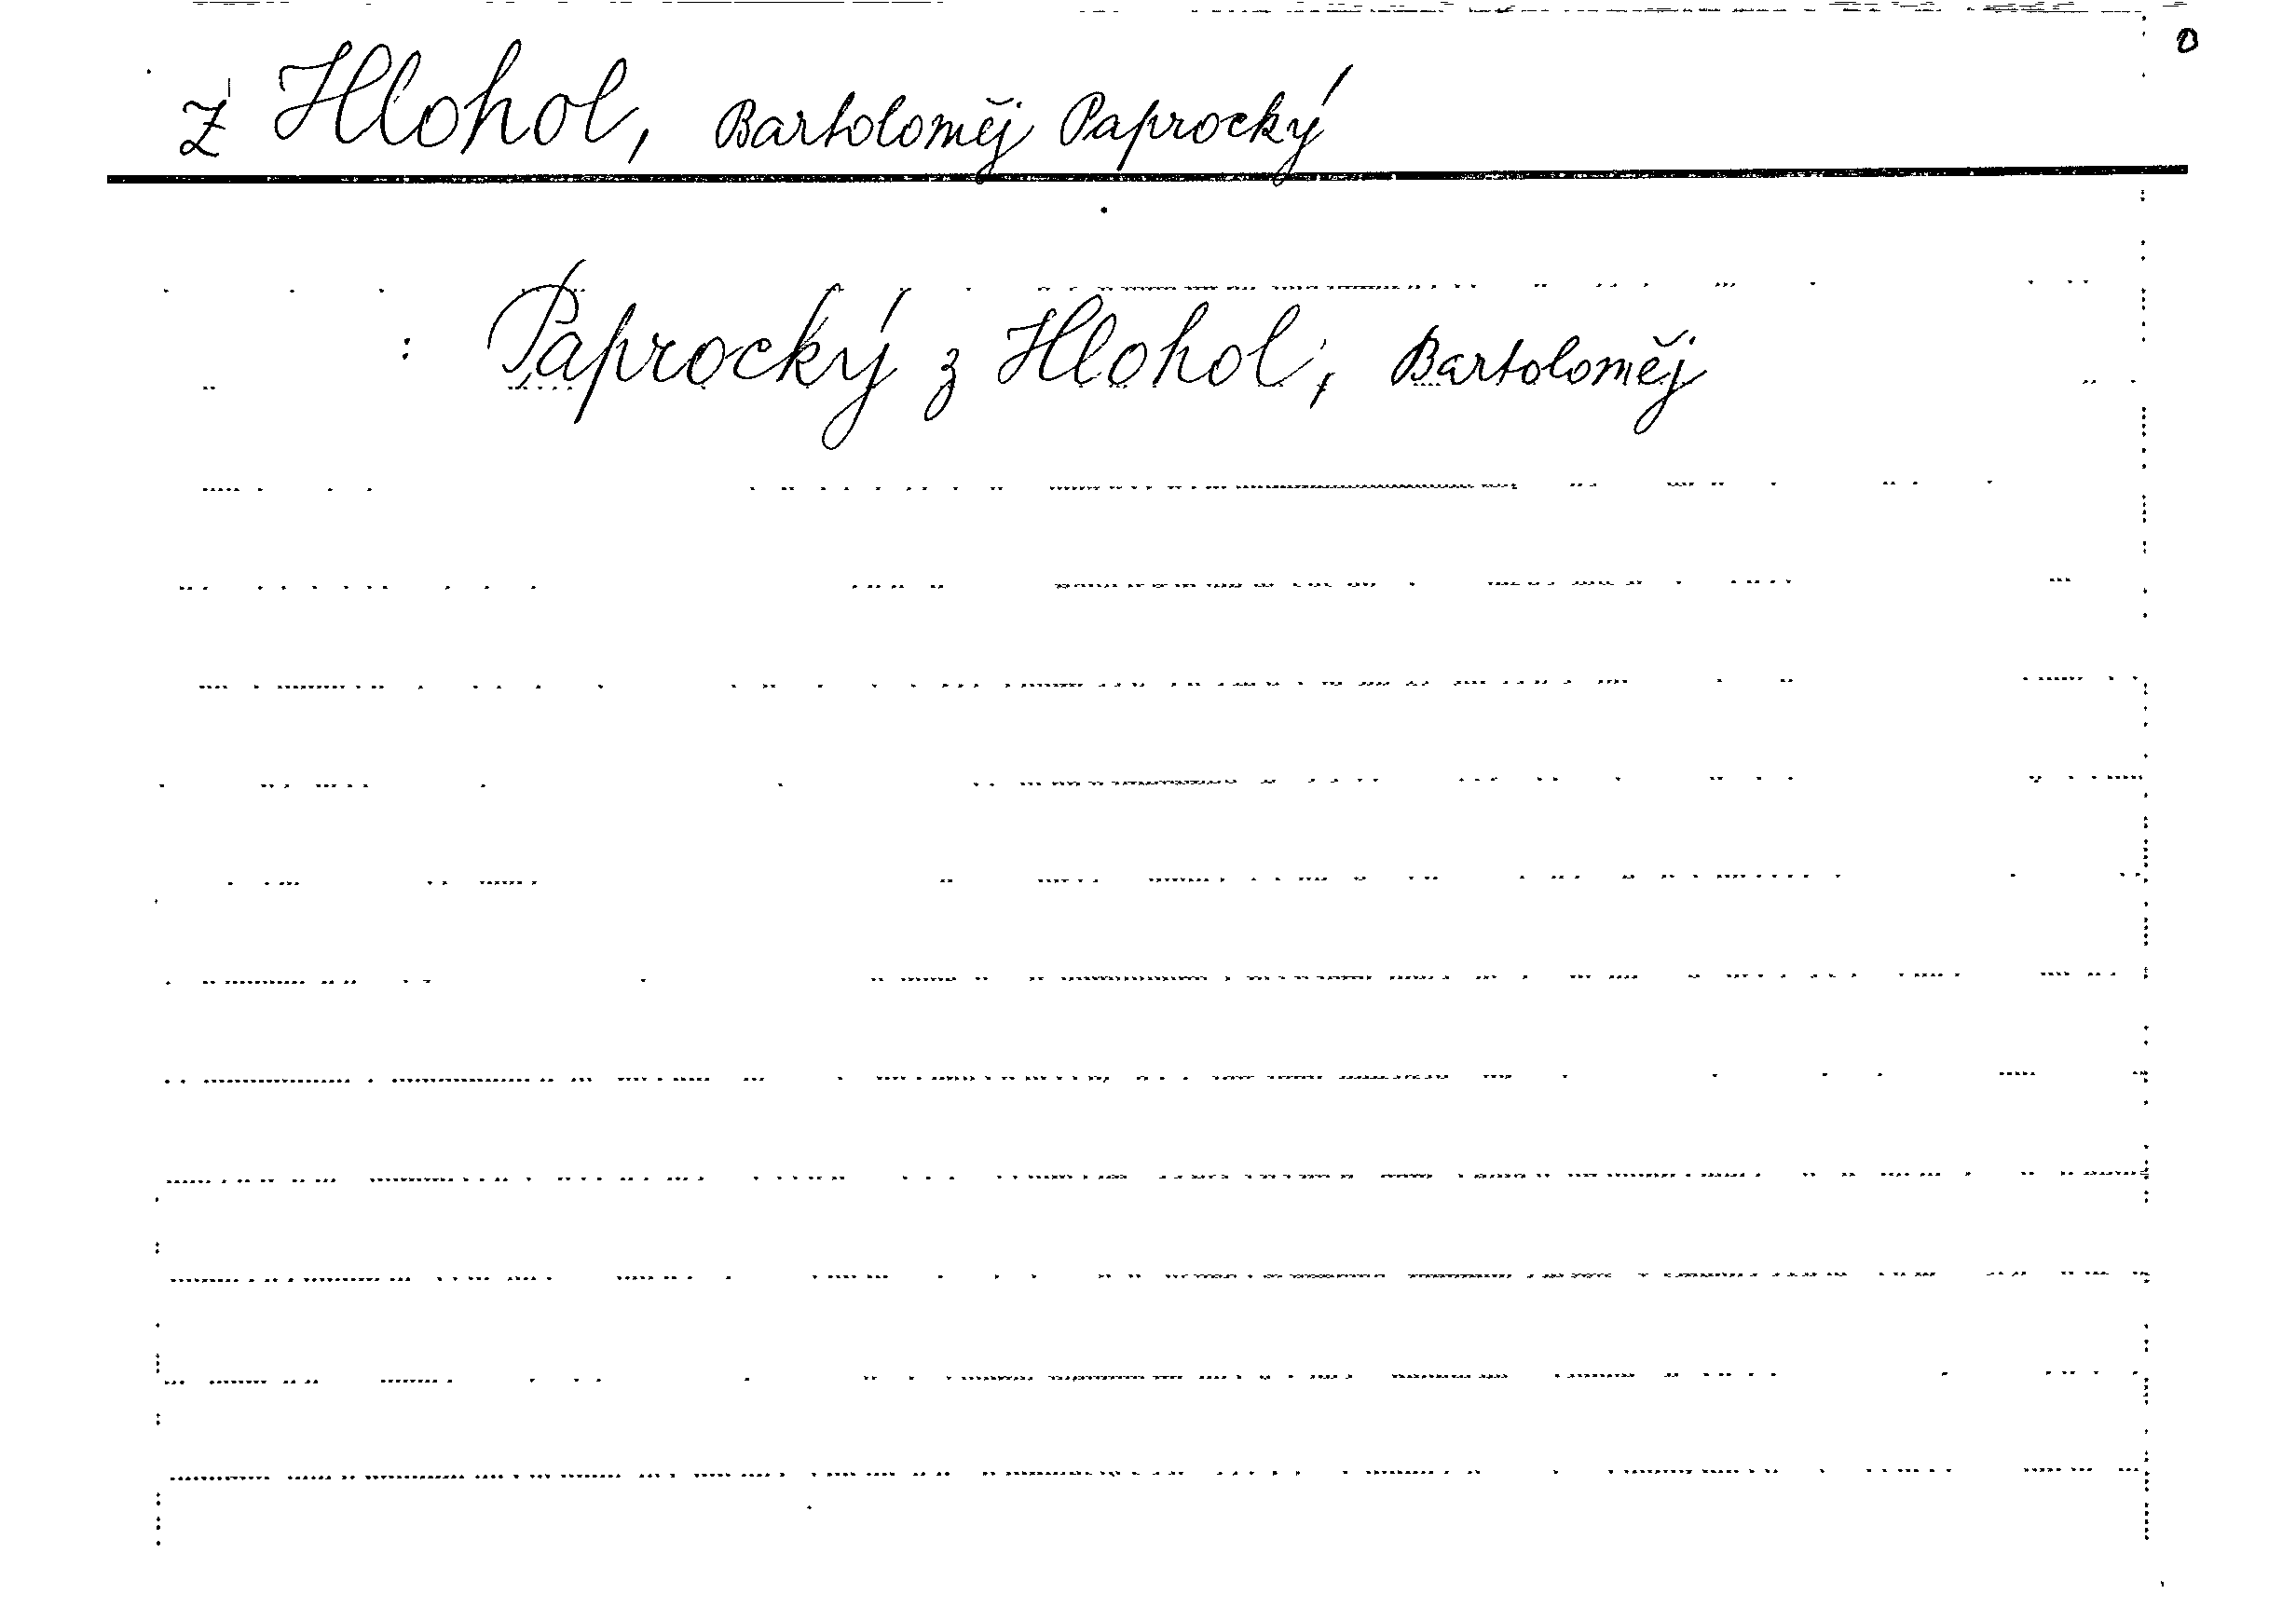 0
z Hlohol, Bartoloměj Paprocký
: Paprocký z Hlohol, Bartoloměj